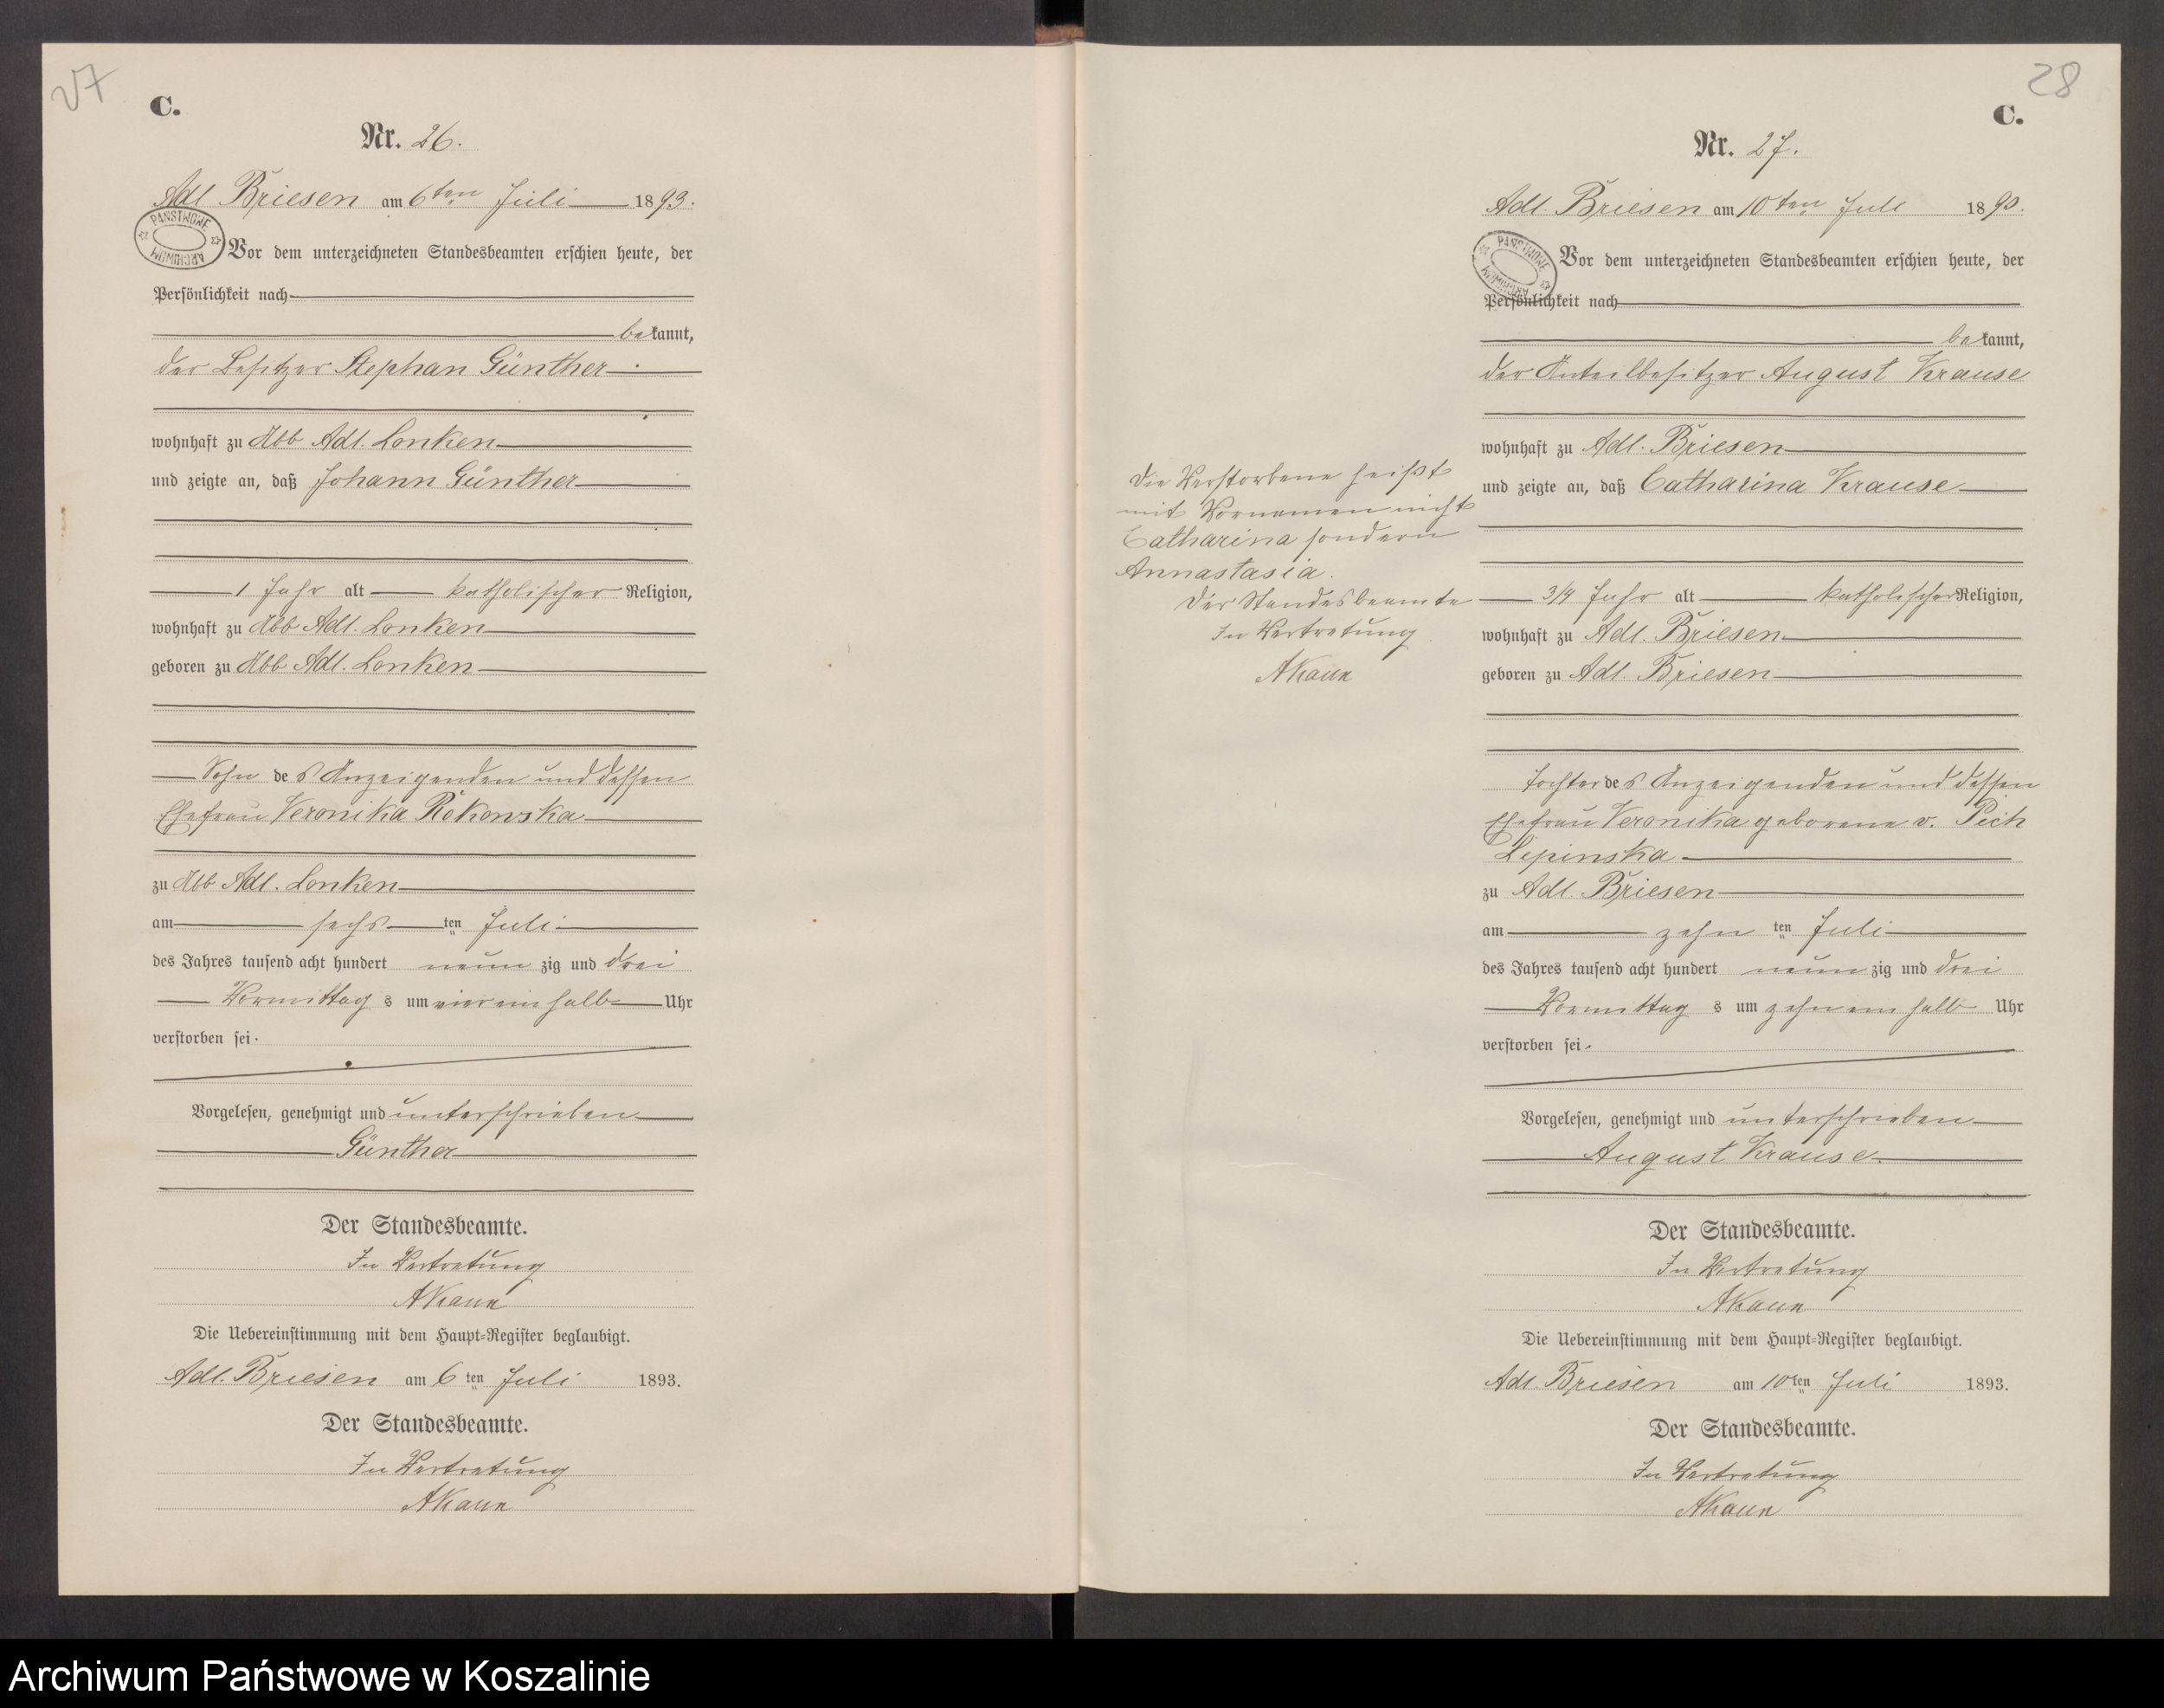 27
C.
Nr. 26.
Adl Briesen am 6ten Juli 1893.
PANSTWOWE ARCHIWUM
Vor dem unterzeichneten Standesbeamten erschien heute, der
Persönlichkeit nach
bekannt,
der Besitzer Stephan Günther
wohnhaft zu Abb Adl. Lonken
und zeigte an, daß Johann Günther
1 Jahr alt katholischer Religion,
wohnhaft zu Abb Adl. Lonken
geboren zu Abb Adl. Lonken
Sohn des Anzeigenden und dessen
Ehefrau Veronika Rekowska
zu Abb Adl. Lonken
am sechsten Juli
des Jahres tausend acht hundert neunzig und drei
Vormittags um viereinhalb Uhr
verstorben sei.
Vorgelesen, genehmigt und unterschrieben
Günther
Der Standesbeamte.
In Vertretung
AKaun
Die Uebereinstimmung mit dem Haupt-Register beglaubigt.
Adl. Briesen am 6ten Juli 1893.
Der Standesbeamte.
In Vertretung
AKaun
28
C.
Nr. 27.
Adl. Briesen am 10ten Juli 1893.
PANSTWOWE ARCHIWUM
Vor dem unterzeichneten Standesbeamten erschien heute, der
Persönlichkeit nach
bekannt,
der Anteilbesitzer August Krause
wohnhaft zu Adl. Briesen
und zeigte an, daß Catharina Krause
3/4 Jahr alt katholischer Religion,
wohnhaft zu Adl. Briesen
geboren zu Adl. Briesen
Tochter des Anzeigenden und dessen
Ehefrau Veronika geborene v. Pich
Lipinska
zu Adl. Briesen
am zehnten Juli
des Jahres tausend acht hundert neunzig und drei
Vormittags um zehneinhalb Uhr
verstorben sei.
Vorgelesen, genehmigt und unterschrieben
August Krause.
Der Standesbeamte.
In Vertretung
AKaun
Die Uebereinstimmung mit dem Haupt-Register beglaubigt.
Adl. Briesen am 10ten Juli 1893.
Der Standesbeamte.
In Vertretung
AKaun
Die Verstorbene heißt
mit Vornamen nicht
Catharina sondern
Annastasia.
Der Standesbeamte
In Vertretung
AKaun
Archiwum Państwowe w Koszalinie